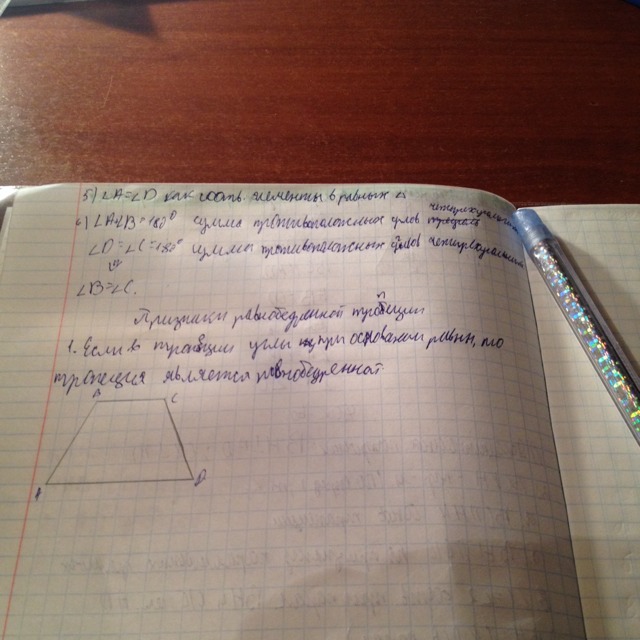 5) ∠A=∠D как соотв. элементы в равных △
6) ∠A+∠B=180° сумма противоположных углов четырехугольника
∠D=∠C=180° сумма противоположных углов четырехугольника
∠B=∠C.
Признаки равнобедренной трапеции
1. Если в трапеции углы при основании равны, то
трапеция является равнобедренной
B C
A D